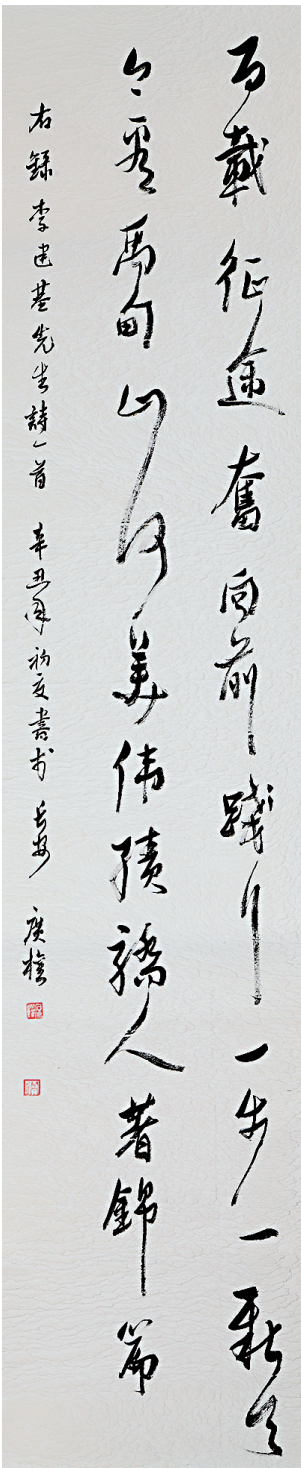 百載征途奮向前踐行一步一新天
今看禹甸山河美伟績驕人著錦篇
右錄李建基先生詩一首 辛丑年初夏書於長安 廣權